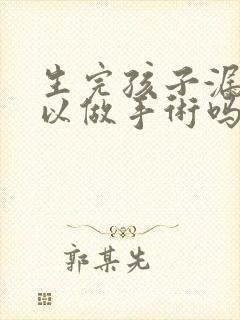 生完孩子漏
以做手術吗
郭某先